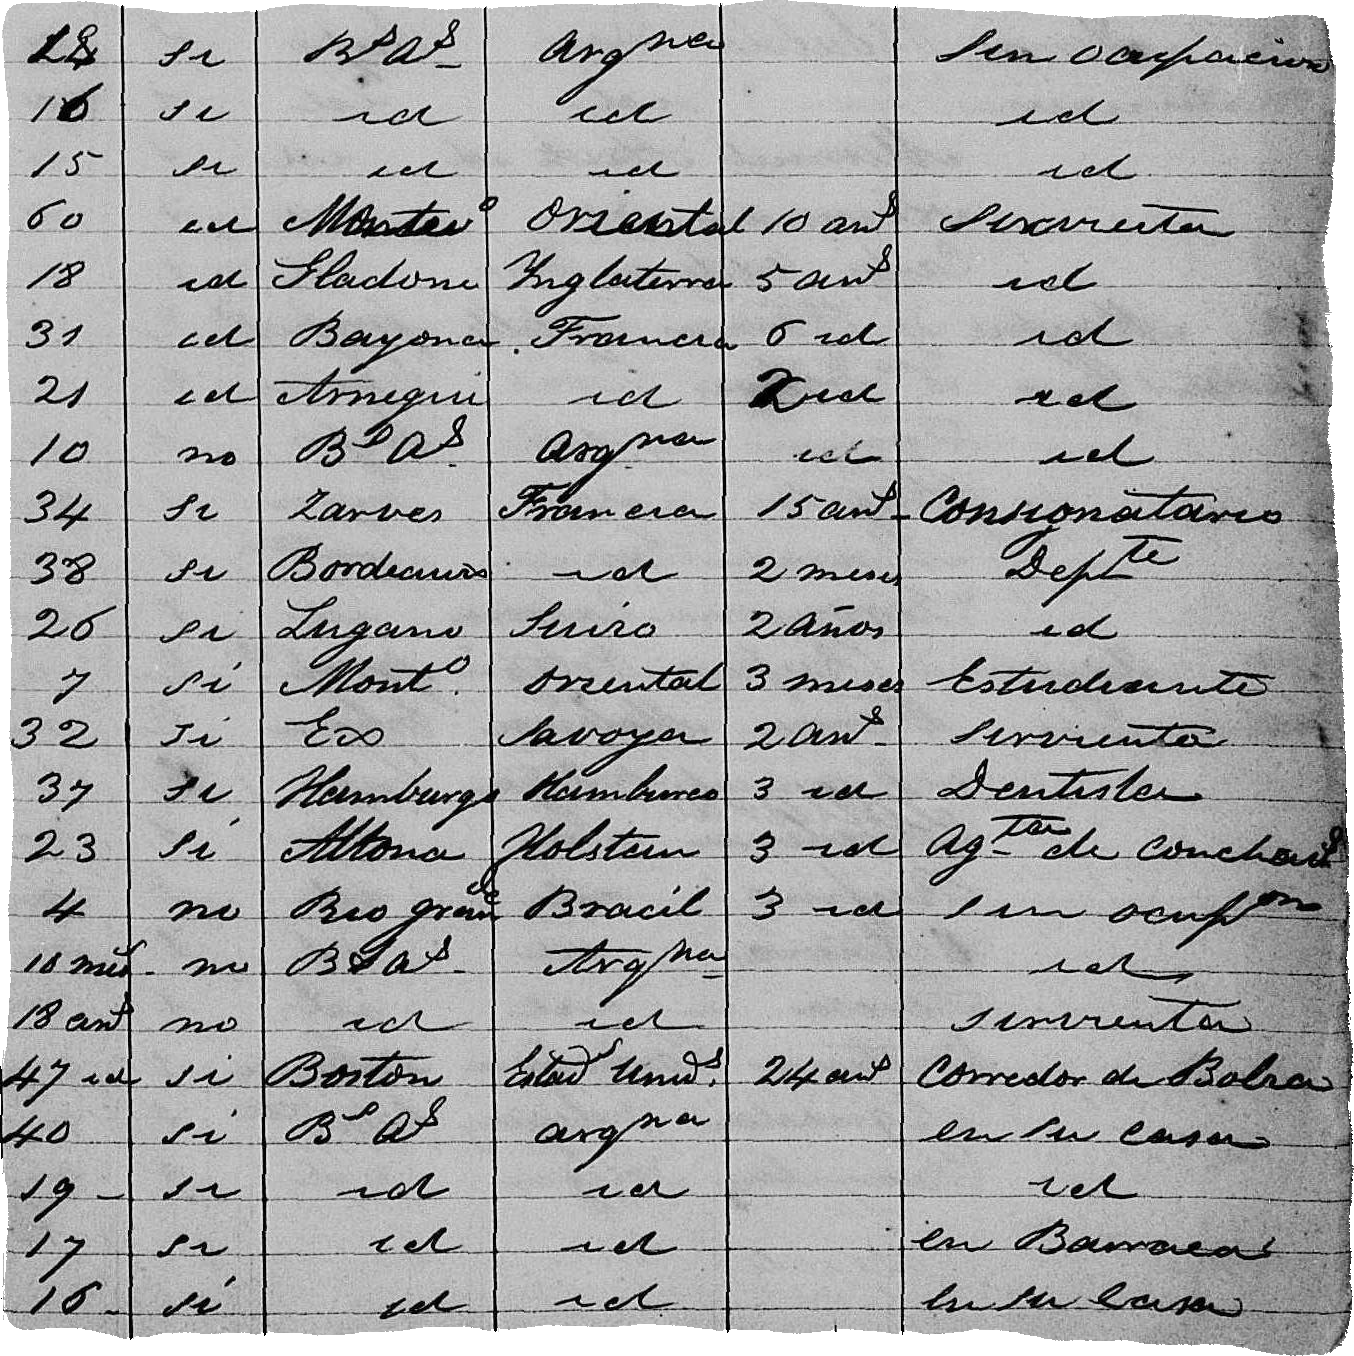 si Bs As Argna Sin ocupacion
16 si id id id
15 si id id id
60 id Montevo Oriental 10 ans Sirvienta
18 id Ynglaterra 5 ans id
31 id Bayona Francia 6 id id
21 id Arnegui id 2 id id
10 no Bs As Argna id id
34 si Zarves Francia 15 ans Consignatario
38 si Bordeaux id 2 meses Depte
26 si Lugano Suizo 2 años id
7 si Monto. Oriental 3 meses Estudiante
32 si Ex Savoya 2 ans Sirvienta
37 si Hamburgo Hamburgo 3 id Dentista
23 si Altona Holstein 3 id Agta de
4 no Rio grande Bracil 3 id Sin ocupon
10 mes no Bs As Argna id
18 ans no id id sirvienta
47 id si Boston Estads Unids. 24 ans Corredor de Bolsa
40 si Bs As argna en su casa
19 - si id id id
17 si id id en Barraca
16 - si id id en su casa